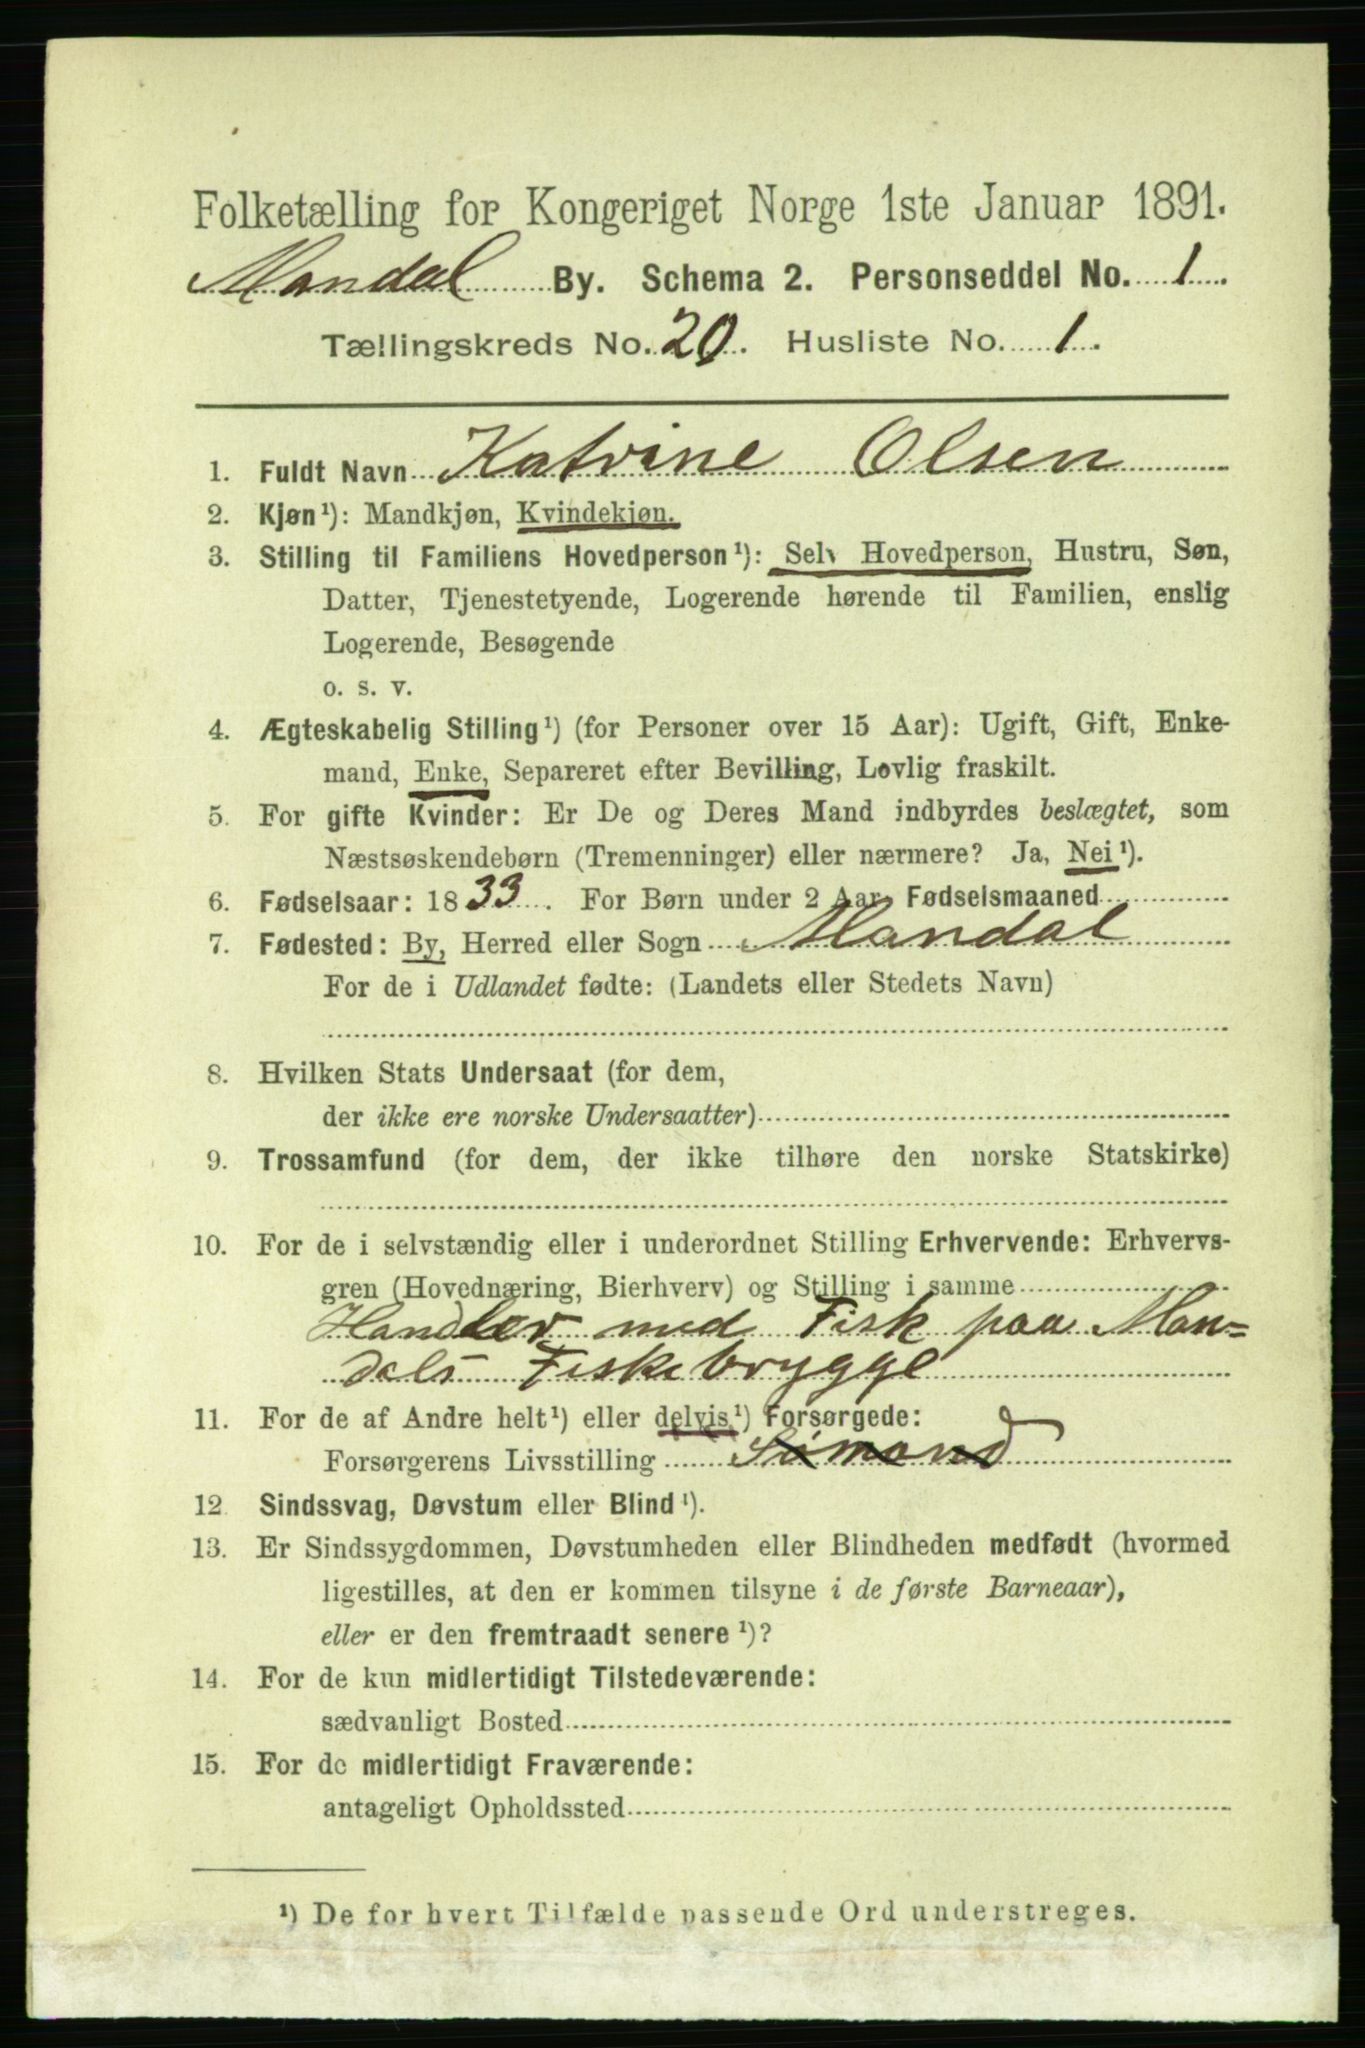 Folketælling for Kongeriget Norge 1ste Januar 1891.
Mandal By. Schema 2. Personseddel No. 1.
Tællingskreds No. 20. Husliste No. 1.
1. Fuldt Navn Katrine Olsen
2. Kjøn¹): Mandkjøn, Kvindekjøn.
3. Stilling til Familiens Hovedperson¹): Selv Hovedperson, Hustru, Søn,
Datter, Tjenestetyende, Logerende hørende til Familien, enslig
Logerende, Besøgende
o. s. v.
4. Ægteskabelig Stilling¹) (for Personer over 15 Aar): Ugift, Gift, Enke-
mand, Enke, Separeret efter Bevilling, Lovlig fraskilt.
5. For gifte Kvinder: Er De og Deres Mand indbyrdes beslægtet, som
Næstsøskendebørn (Tremenninger) eller nærmere? Ja, Nei¹).
6. Fødselsaar: 1833. For Børn under 2 Aar, Fødselsmaaned
7. Fødested: By, Herred eller Sogn Mandal
For de i Udlandet fødte: (Landets eller Stedets Navn)
8. Hvilken Stats Undersaat (for dem,
der ikke ere norske Undersaatter)
9. Trossamfund (for dem, der ikke tilhøre den norske Statskirke)
10. For de i selvstændig eller i underordnet Stilling Erhvervende: Erhvervs-
gren (Hovednæring, Bierhverv) og Stilling i samme
Handler med Fisk paa Man=
dals Fiskebrygge
11. For de af Andre helt¹) eller delvis¹) Forsørgede:
Forsørgerens Livsstilling Sømand
12. Sindssvag, Døvstum eller Blind¹).
13. Er Sindssygdommen, Døvstumheden eller Blindheden medfødt (hvormed
ligestilles, at den er kommen tilsyne i de første Barneaar),
eller er den fremtraadt senere¹)?
14. For de kun midlertidigt Tilstedeværende:
sædvanligt Bosted
15. For de midlertidigt Fraværende:
antageligt Opholdssted
¹) De for hvert Tilfælde passende Ord understreges.